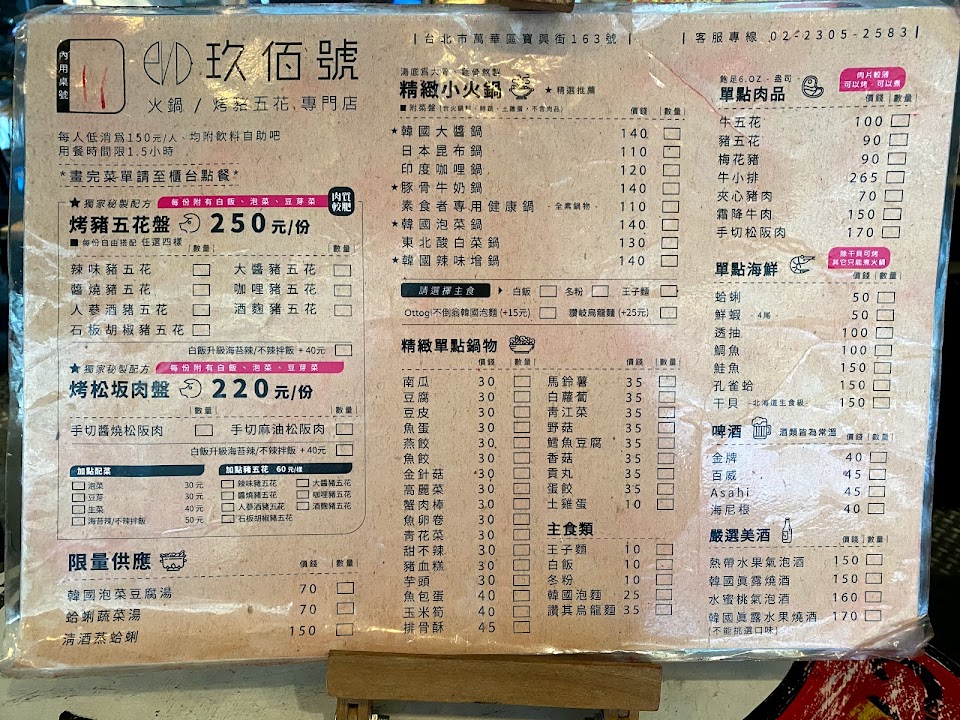 內用桌號
玖佰號
火鍋 / 烤豬五花、專門店
每人低消為150元/人、均附飲料自助吧
用餐時間限1.5小時
*畫完菜單請至櫃台點餐*
★ 獨家秘製配方 每份附有白飯、泡菜、豆芽菜
肉質較肥
烤豬五花盤 250元/份
■ 每份自由搭配 任選四樣 |數量| |數量|
辣味豬五花 大醬豬五花
醬燒豬五花 咖哩豬五花
人蔘酒豬五花 酒麴豬五花
石板胡椒豬五花
白飯升級海苔辣/不辣拌飯 + 40元
★ 獨家秘製配方 每份附有白飯、泡菜、豆芽菜
烤松坂肉盤 220元/份
|數量| |數量|
手切醬燒松阪肉 手切麻油松阪肉
白飯升級海苔辣/不辣拌飯 + 40元
加點配菜
泡菜 30元
豆芽 30元
生菜 40元
海苔辣/不辣拌飯 50元
加點豬五花 60元/樣
辣味豬五花 大醬豬五花
醬燒豬五花 咖哩豬五花
人蔘酒豬五花 酒麴豬五花
石板胡椒豬五花
限量供應 價錢 |數量|
韓國泡菜豆腐湯 70
蛤蜊蔬菜湯 70
清酒蒸蛤蜊 150
|台北市萬華區寶興街163號|
|客服專線 02-2305-2583|
湯底為大骨、雞骨熬製
精緻小火鍋 ★ 精選推薦
價錢 |數量|
★韓國大醬鍋 140
日本昆布鍋 110
印度咖哩鍋 120
★豚骨牛奶鍋 140
素食者專用健康鍋 -全素鍋物- 110
★韓國泡菜鍋 140
東北酸白菜鍋 130
★韓國辣味增鍋 140
請選擇主食 白飯 冬粉 王子麵
Ottogi不倒翁韓國泡麵 (+15元) 讚岐烏龍麵 (+25元)
精緻單點鍋物
價錢 |數量| 價錢 |數量|
南瓜 30
豆腐 30
豆皮 30
魚蛋 30
燕餃 30
魚餃 30
金針菇 30
高麗菜 30
蟹肉棒 30
魚卵卷 30
青花菜 30
甜不辣 30
豬血糕 30
芋頭 30
魚包蛋 40
玉米筍 40
排骨酥 45
馬鈴薯 35
白蘿蔔 35
青江菜 35
野菇 35
鱈魚豆腐 35
香菇 35
貢丸 35
蛋餃 35
土雞蛋 10
主食類
王子麵 10
白飯 10
冬粉 10
韓國泡麵 25
讚其烏龍麵 35
飽足6.OZ - 盎司
單點肉品
肉片較薄
可以烤，可以煮
價錢 |數量|
牛五花 100
豬五花 90
梅花豬 90
牛小排 265
夾心豬肉 70
霜降牛肉 150
手切松阪肉 170
單點海鮮
除干貝可烤
其它只能煮火鍋
價錢 |數量|
蛤蜊 50
鮮蝦 4尾 50
透抽 100
鯛魚 100
鮭魚 150
孔雀蛤 150
干貝 -北海道生食級- 150
啤酒 酒類皆為常溫 價錢 |數量|
金牌 40
百威 45
Asahi 45
海尼根 40
嚴選美酒 價錢 |數量|
熱帶水果氣泡酒 150
韓國真露燒酒 150
水蜜桃氣泡酒 160
韓國真露水果燒酒 170
(不能挑選口味)